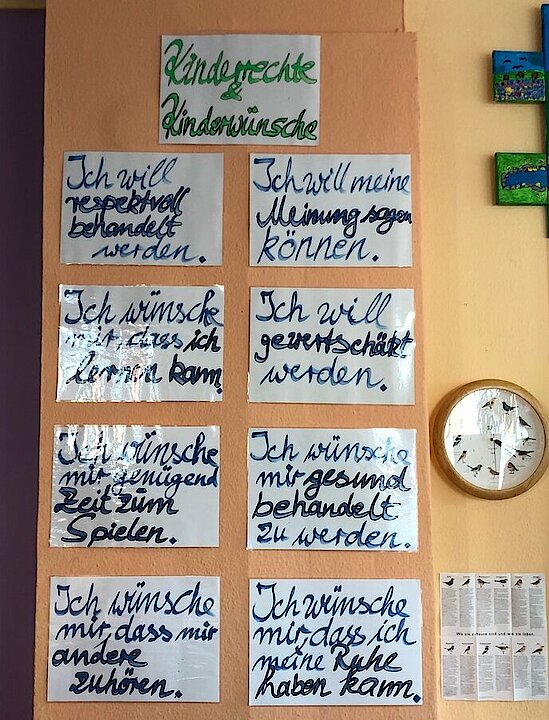 Kinderrechte
&
Kinderwünsche
Ich will
respektvoll
behandelt
werden.
Ich will meine
Meinung sagen
können.
Ich wünsche
mir, dass ich
lernen kann.
Ich will
gewertschätzt
werden.
Ich wünsche
mir genügend
Zeit zum
Spielen.
Ich wünsche
mir gesund
behandelt
zu werden.
Ich wünsche
mir, dass mir
andere
zuhören.
Ich wünsche
mir, dass ich
meine Ruhe
haben kann.
Wo sie zuhause sind und wie sie leben.